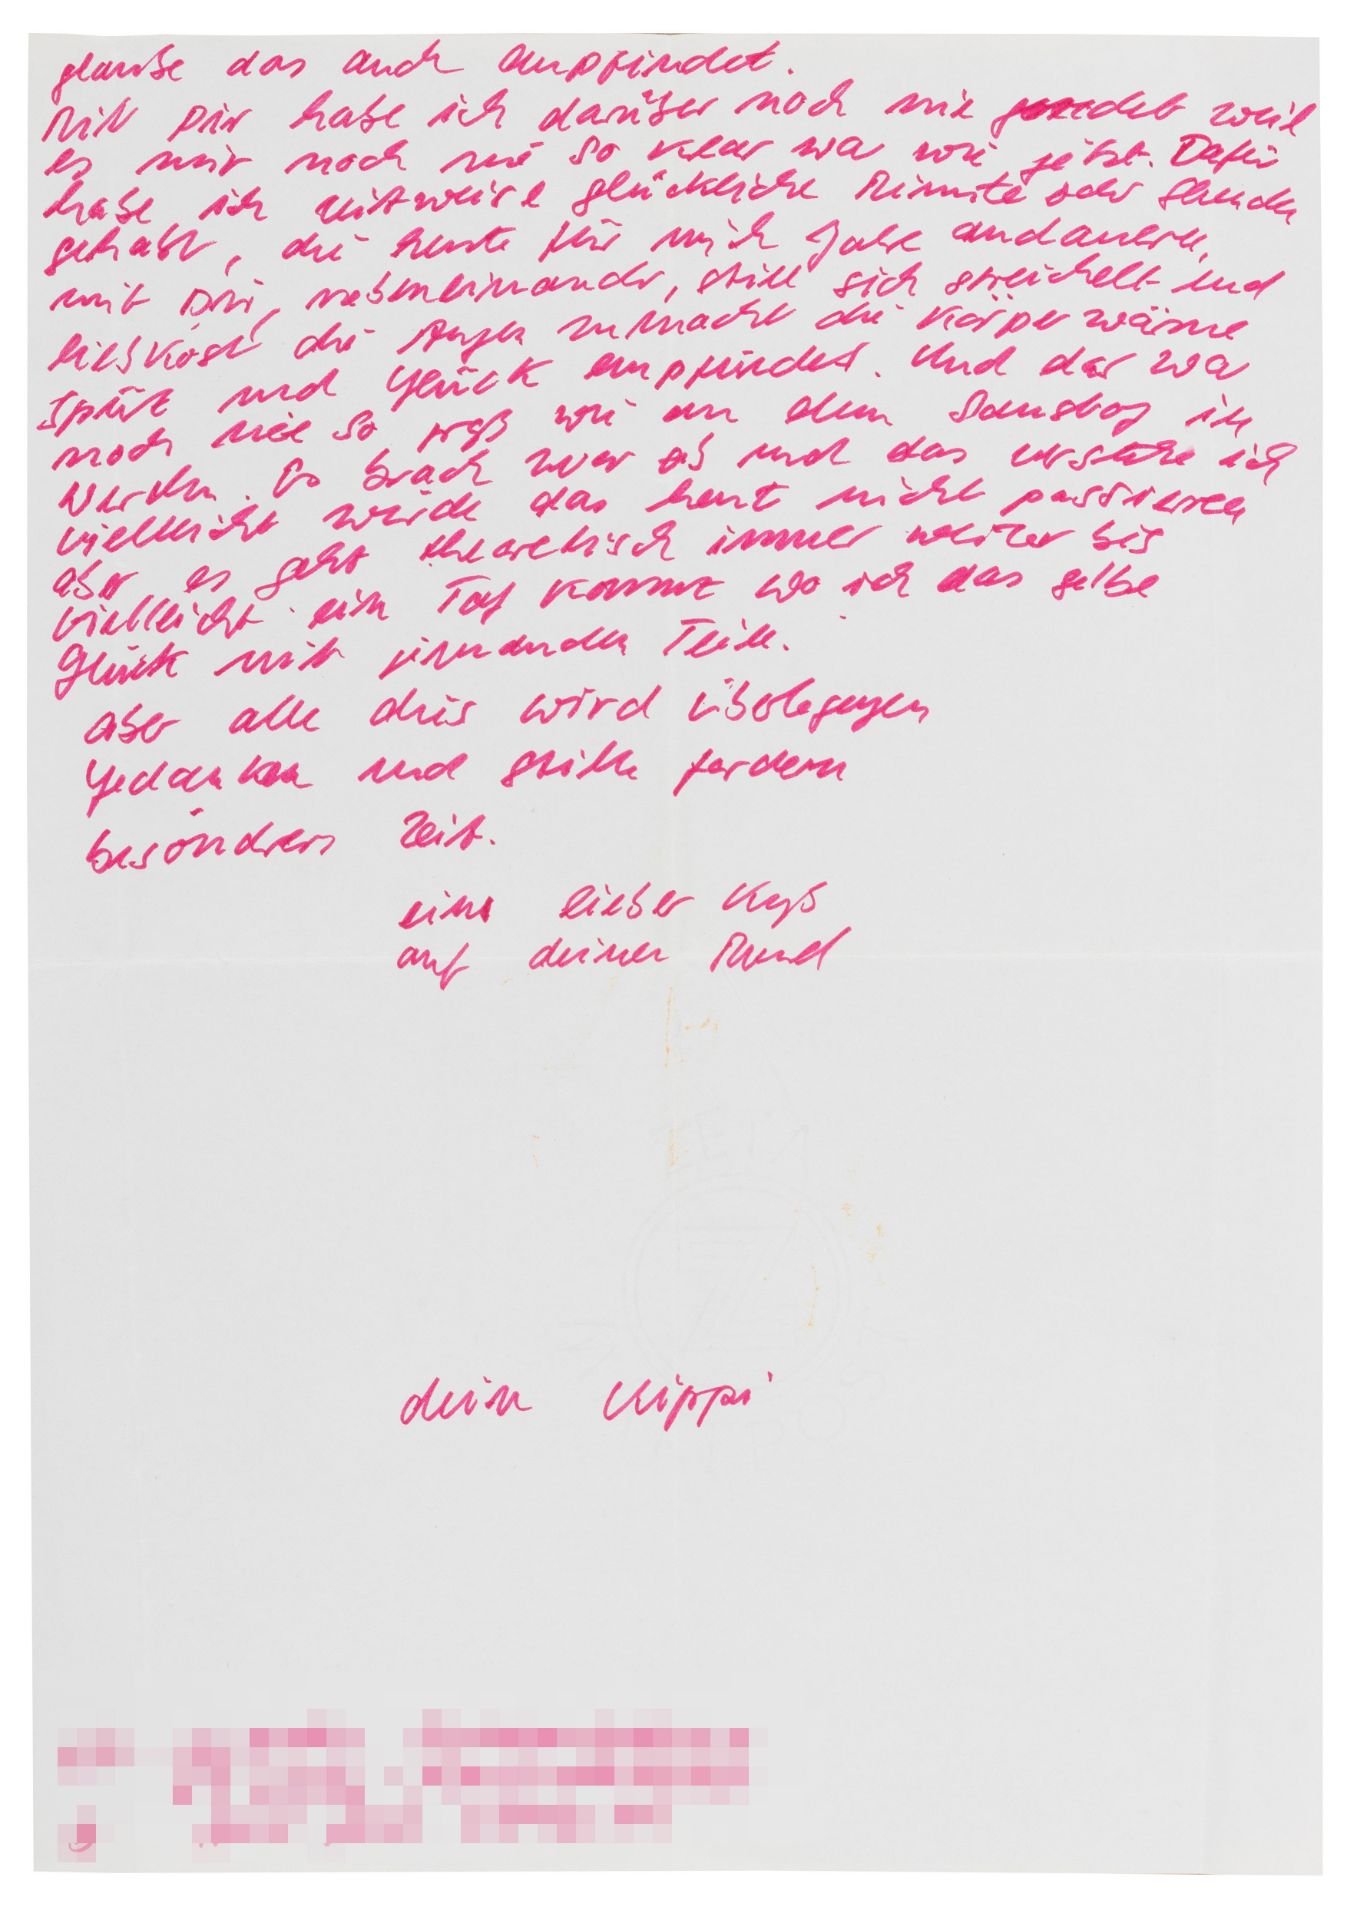 glaube das auch empfindet.
Mit Dir habe ich darüber noch nie geredet weil
es mir noch nie so klar wa wie jetzt. Dafür
habe ich zeitweise glückliche Minute oder Stunden
gehabt, die heute für mich Jahre andauern,
mit Dir, nebeneinander, still sich streichelt und
liebkost die Augen zumacht die Körperwärme
spürt und Glück empfindet. Und dar wa
noch nie so groß wie an dem Samstag in
Werden. Es brach zwar ab und das verstehe ich
vielleicht würde das heut nicht passieren
aber es geht theoretisch immer weiter bis
vielleicht ein Tag kommt wo ich das selbe
Glück mit jemanden Teile.
aber alle dies wird überlegungen
Gedanken und stille fordern
besonders Zeit.
eine lieber Kuß
auf deinen Mund
dein Kippi